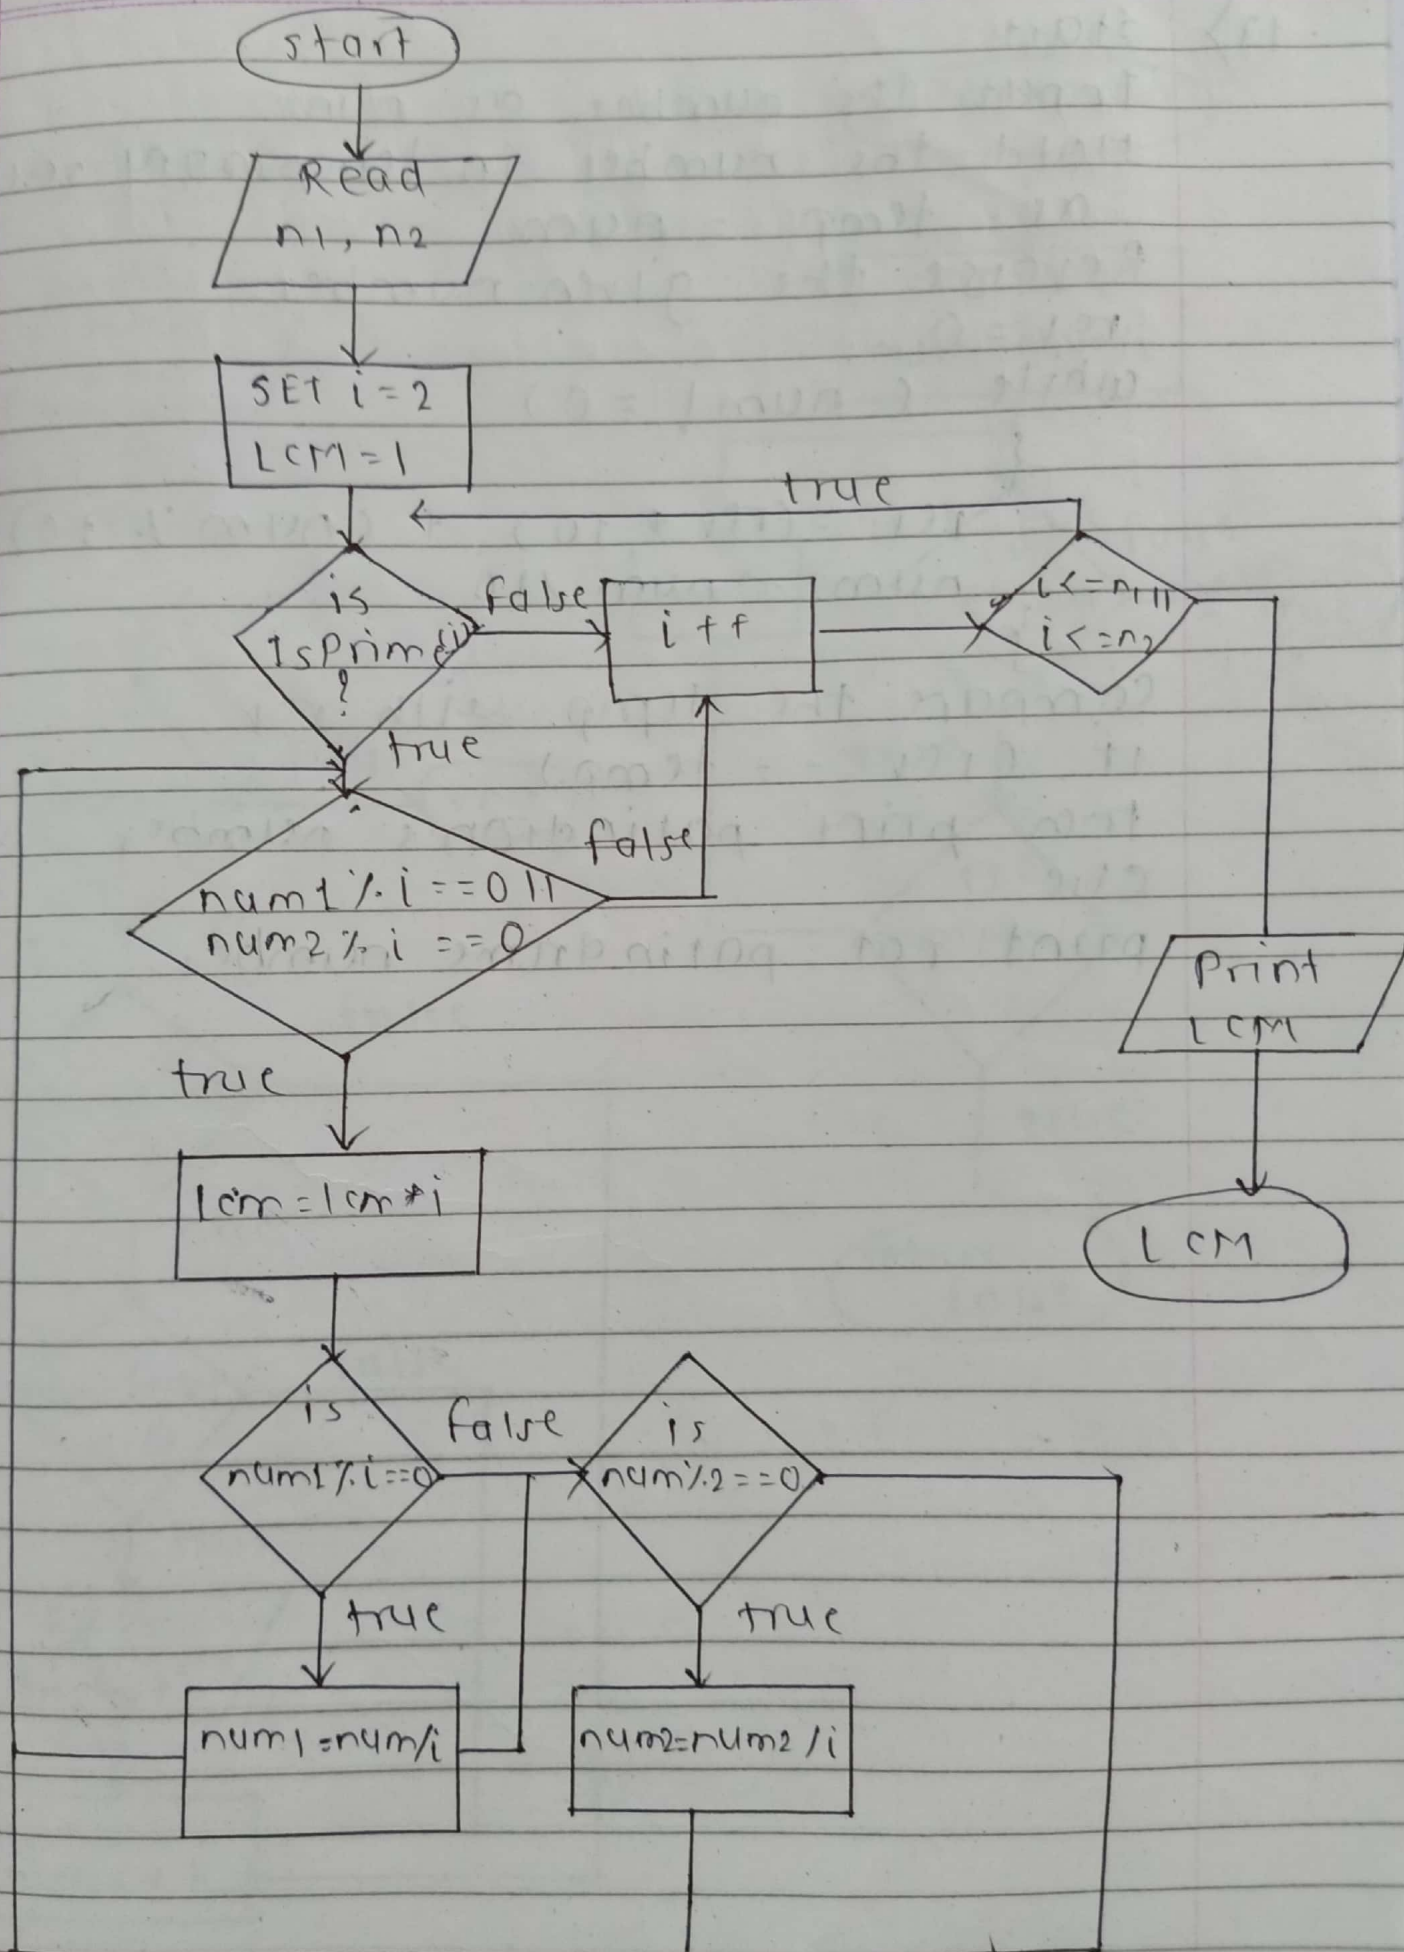 start
Read
n1, n2
SET i = 2
LCM = 1
true
is
IsPrime(i)
?
false
i++
i<=n1 ||
i<=n2
true
false
num1 % i == 0 ||
num2 % i == 0
Print
LCM
true
lcm = lcm * i
LCM
is
num1 % i == 0
false
is
num%2 == 0
true
true
num1 = num/i
num2 = num2 / i